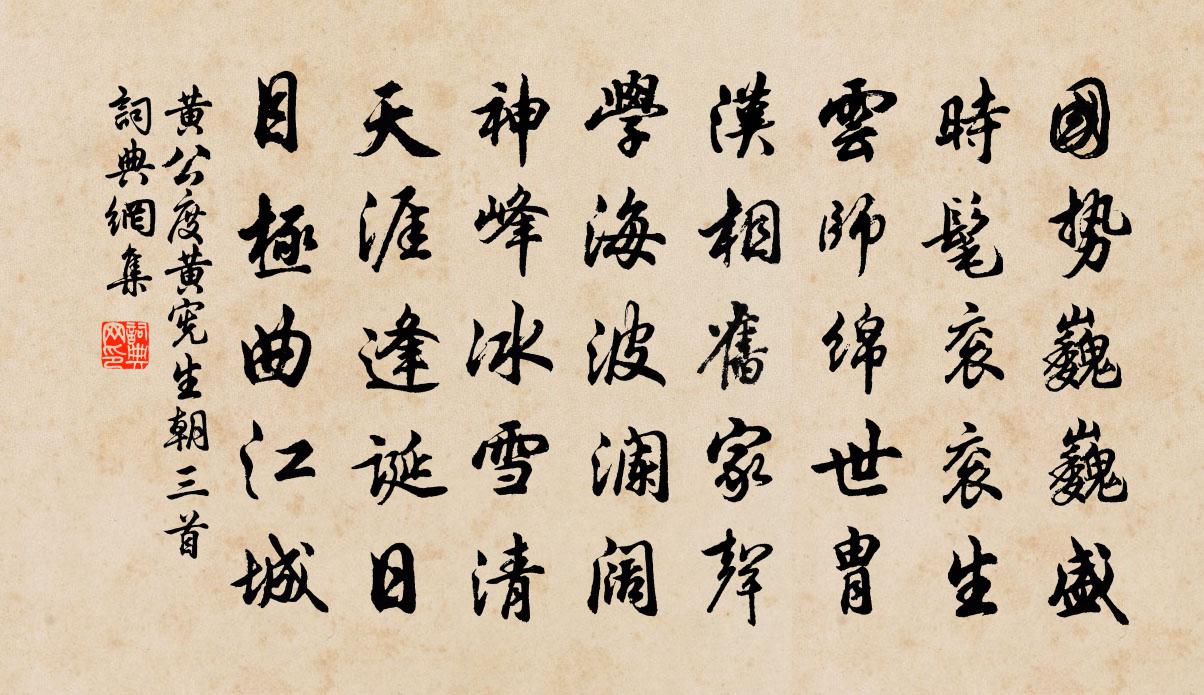 國勢巍巍盛
時髦衮衮生
雲師綿世胄
漢相舊家聲
學海波澜阔
神峰冰雪清
天涯逢誕日
目極曲江城
黄公度黄宪生朝三首
詞典網集
詞典网印